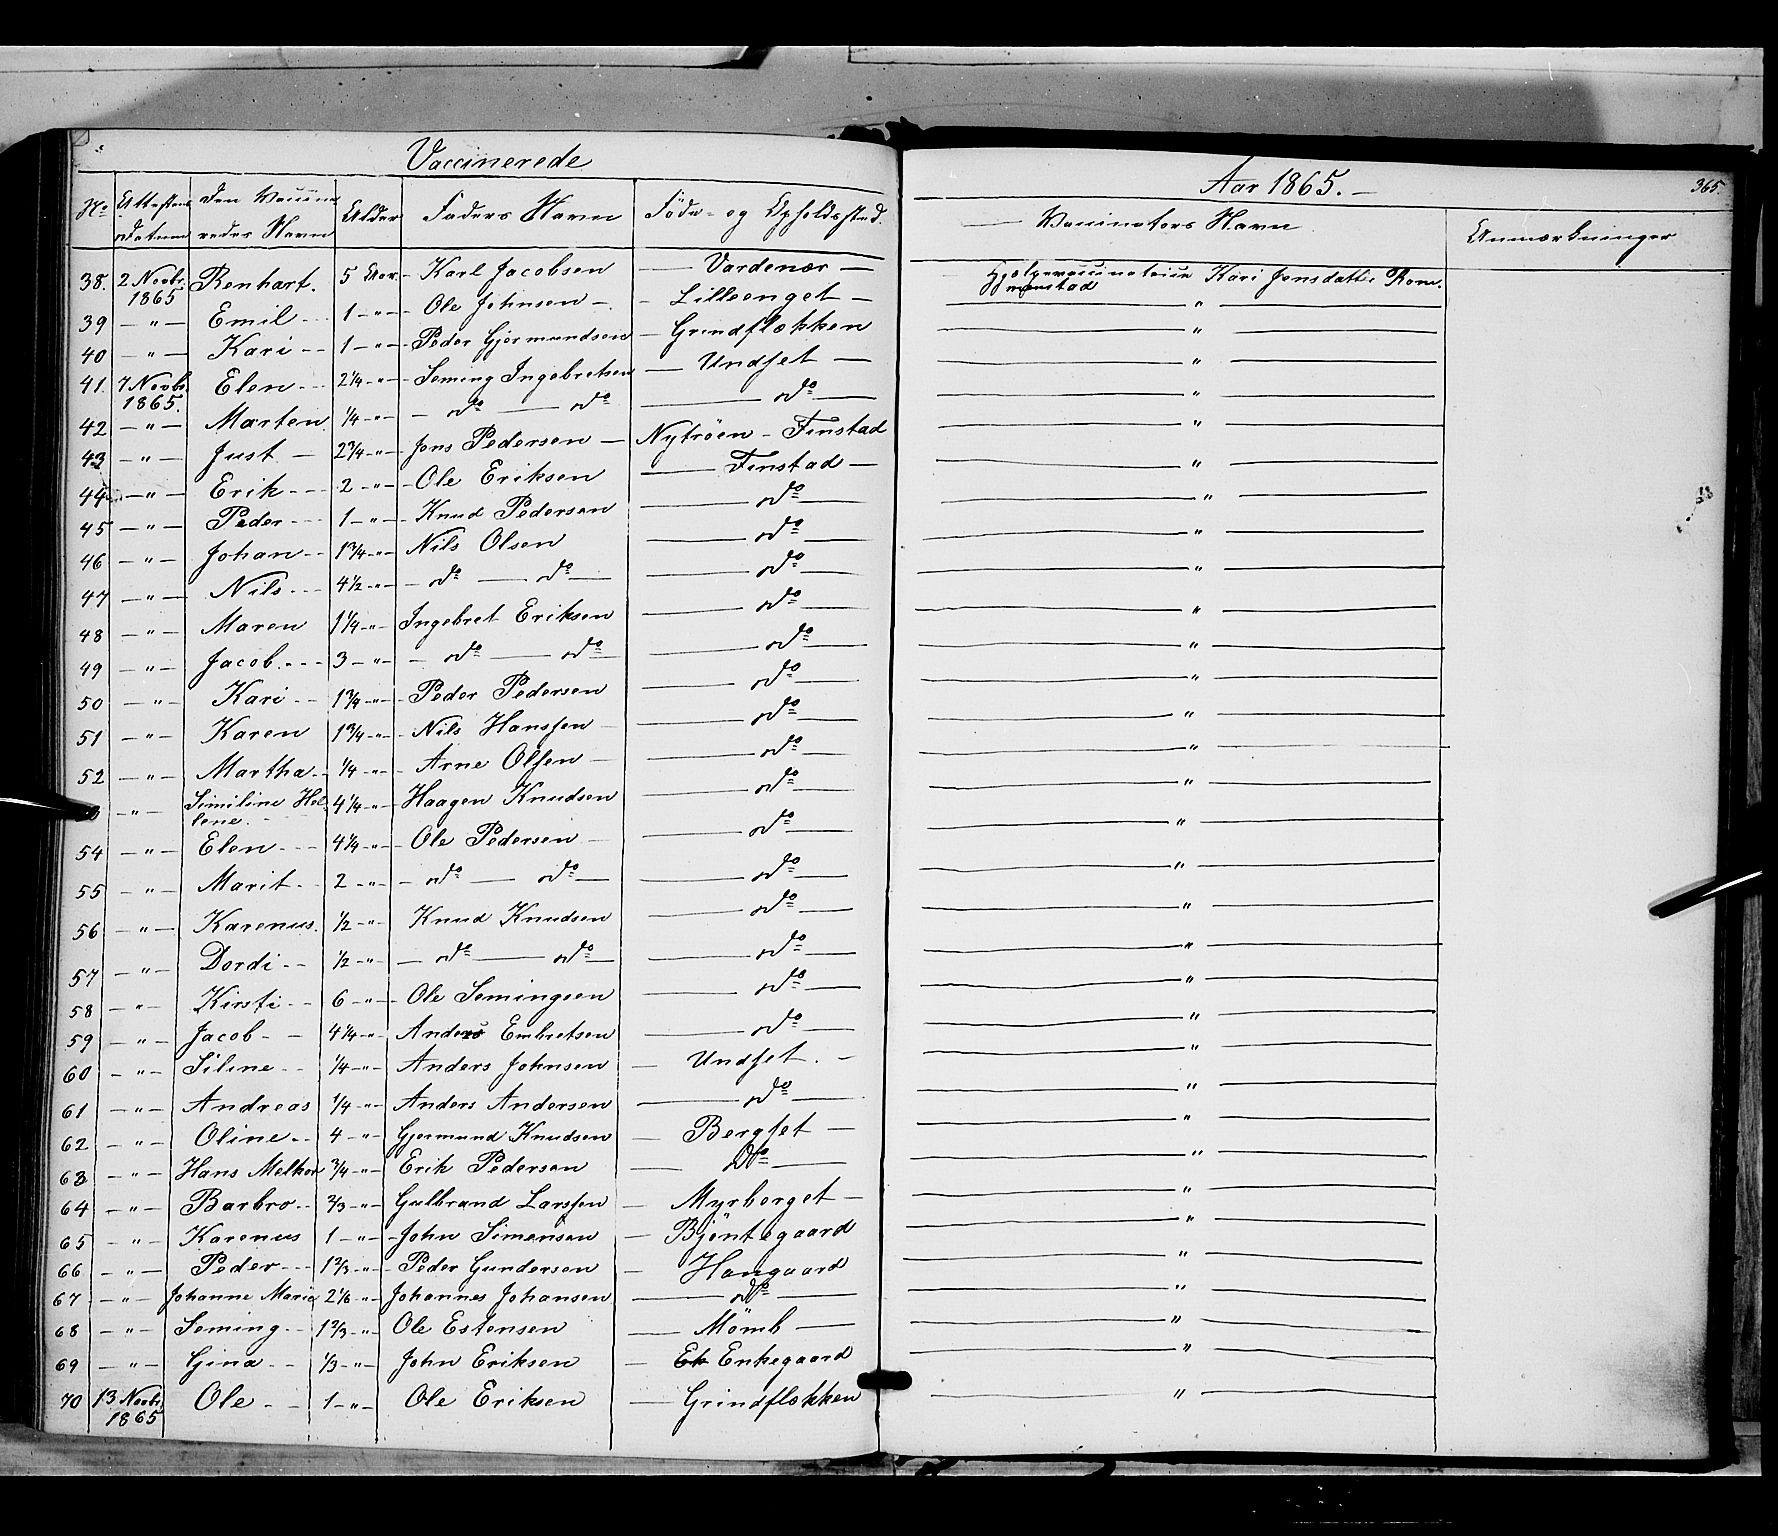 Vaccinerede
Aar 1865.
365.
No Attestens Datum Den Vaccineredes Navn Alder Faders Navn Føde- og Opholdssted Vaccinators Navn Anmærkninger
38. 2 Novbr. 1865 Renhart. 5 Aar. Karl Jacobsen Vardenær Hjælpevaccinatrice Kari Jonsdatter
39 — " — Emil 1 — " — Ole Johnsen Lilleenget "
40 — " — Kari 1 — " — Peder Gjermundsen Grindflækken "
41. 7 Novbr. 1865. Elen 2 1/4 — " — Seming Ingebretsen Undset "
42 — " — Marten 1/4 — " — do do do "
43 — " — Just 2 3/4 — " — Jens Pedersen Nytröen - Finstad "
44 — " — Erik 2 — " — Ole Eriksen Finstad "
45 — " — Peder 1 — " — Knud Pedersen do "
46 — " — Johan 1 3/4 — " — Nils Olsen do "
47 — " — Nils 4 1/2 — " — do do do "
48 — " — Maren 1 1/4 — " — Ingebret Eriksen do "
49 — " — Jacob 3 — " — do do do "
50 — " — Kari 1 3/4 — " — Peder Pedersen do "
51 — " — Karen 1 3/4 — " — Nils Hanssen do "
52 — " — Martha 1/4 — " — Arne Olsen do "
— " — Similine Helene. 4 1/4 — " — Haagen Knudsen do "
54 — " — Elen 4 1/4 — " — Ole Pedersen do "
55 — " — Marit 2 — " — do do do "
56 — " — Karenus. 1/2 — " — Knud Knudsen do "
57 — " — Dordi 1/2 — " — do do do "
58 — " — Kirsti 6 — " — Ole Semingsen do "
59 — " — Jacob 4 1/4 — " — Anders Embretsen do "
60 — " — Siline 1/4 — " — Anders Johnsen Undset. "
61 — " — Andreas 1/4 — " — Anders Andersen do "
62 — " — Oline 4 — " — Gjermund Knudsen Bergset "
63 — " — Hans Melker 3/4 — " — Erik Pedersen do "
64 — " — Barbro 2/3 — " — Gulbrand Larssen Myrberget "
65 — " — Karenus 1 — " — John Simensen Bjöntegaard "
66 — " — Peder 1 2/3 — " — Peder Gundersen Haugaard "
67 — " — Johanne Maria 2 1/6 — " — Johannes Johansen do "
68 — " — Seming 1 2/3 — " — Ole Estensen Mömb "
69 — " — Gina 1/3 — " — John Eriksen Enkegaard "
70 13 Novbr. 1865 Ole 1 — " — Ole Eriksen Grindflækken "